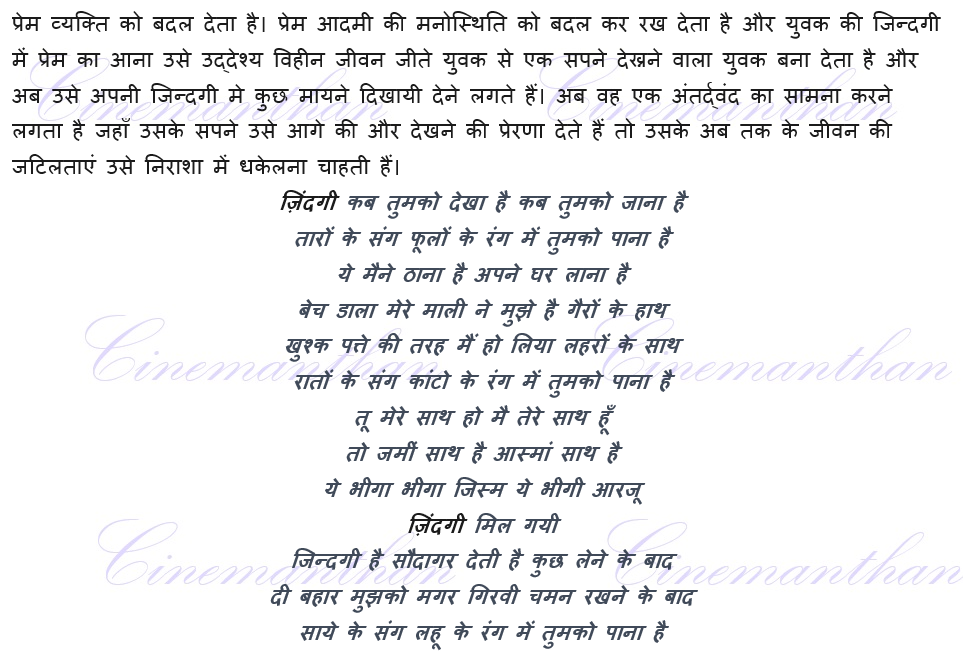 प्रेम व्यक्ति को बदल देता है। प्रेम आदमी की मनोस्थिति को बदल कर रख देता है और युवक की जिन्दगी
में प्रेम का आना उसे उद्देश्य विहीन जीवन जीते युवक से एक सपने देखने वाला युवक बना देता है और
अब उसे अपनी जिन्दगी मे कुछ मायने दिखायी देने लगते हैं। अब वह एक अंतर्द्वंद का सामना करने
लगता है जहाँ उसके सपने उसे आगे की और देखने की प्रेरणा देते हैं तो उसके अब तक के जीवन की
जटिलताएं उसे निराशा में धकेलना चाहती हैं।
ज़िंदगी कब तुमको देखा है कब तुमको जाना है
तारों के संग फूलों के रंग में तुमको पाना है
ये मैने ठाना है अपने घर लाना है
बेच डाला मेरे माली ने मुझे है गैरों के हाथ
खुश्क पत्ते की तरह मैं हो लिया लहरों के साथ
रातों के संग कांटो के रंग में तुमको पाना है
तू मेरे साथ हो मै तेरे साथ हूँ
तो जमीं साथ है आस्मां साथ है
ये भीगा भीगा जिस्म ये भीगी आरजू
ज़िंदगी मिल गयी
जिन्दगी है सौदागर देती है कुछ लेने के बाद
दी बहार मुझको मगर गिरवी चमन रखने के बाद
साये के संग लहू के रंग में तुमको पाना है
Cinemanthan
Cinemanthan
Cinemanthan
Cinemanthan
Cinemanthan
Cinemanthan